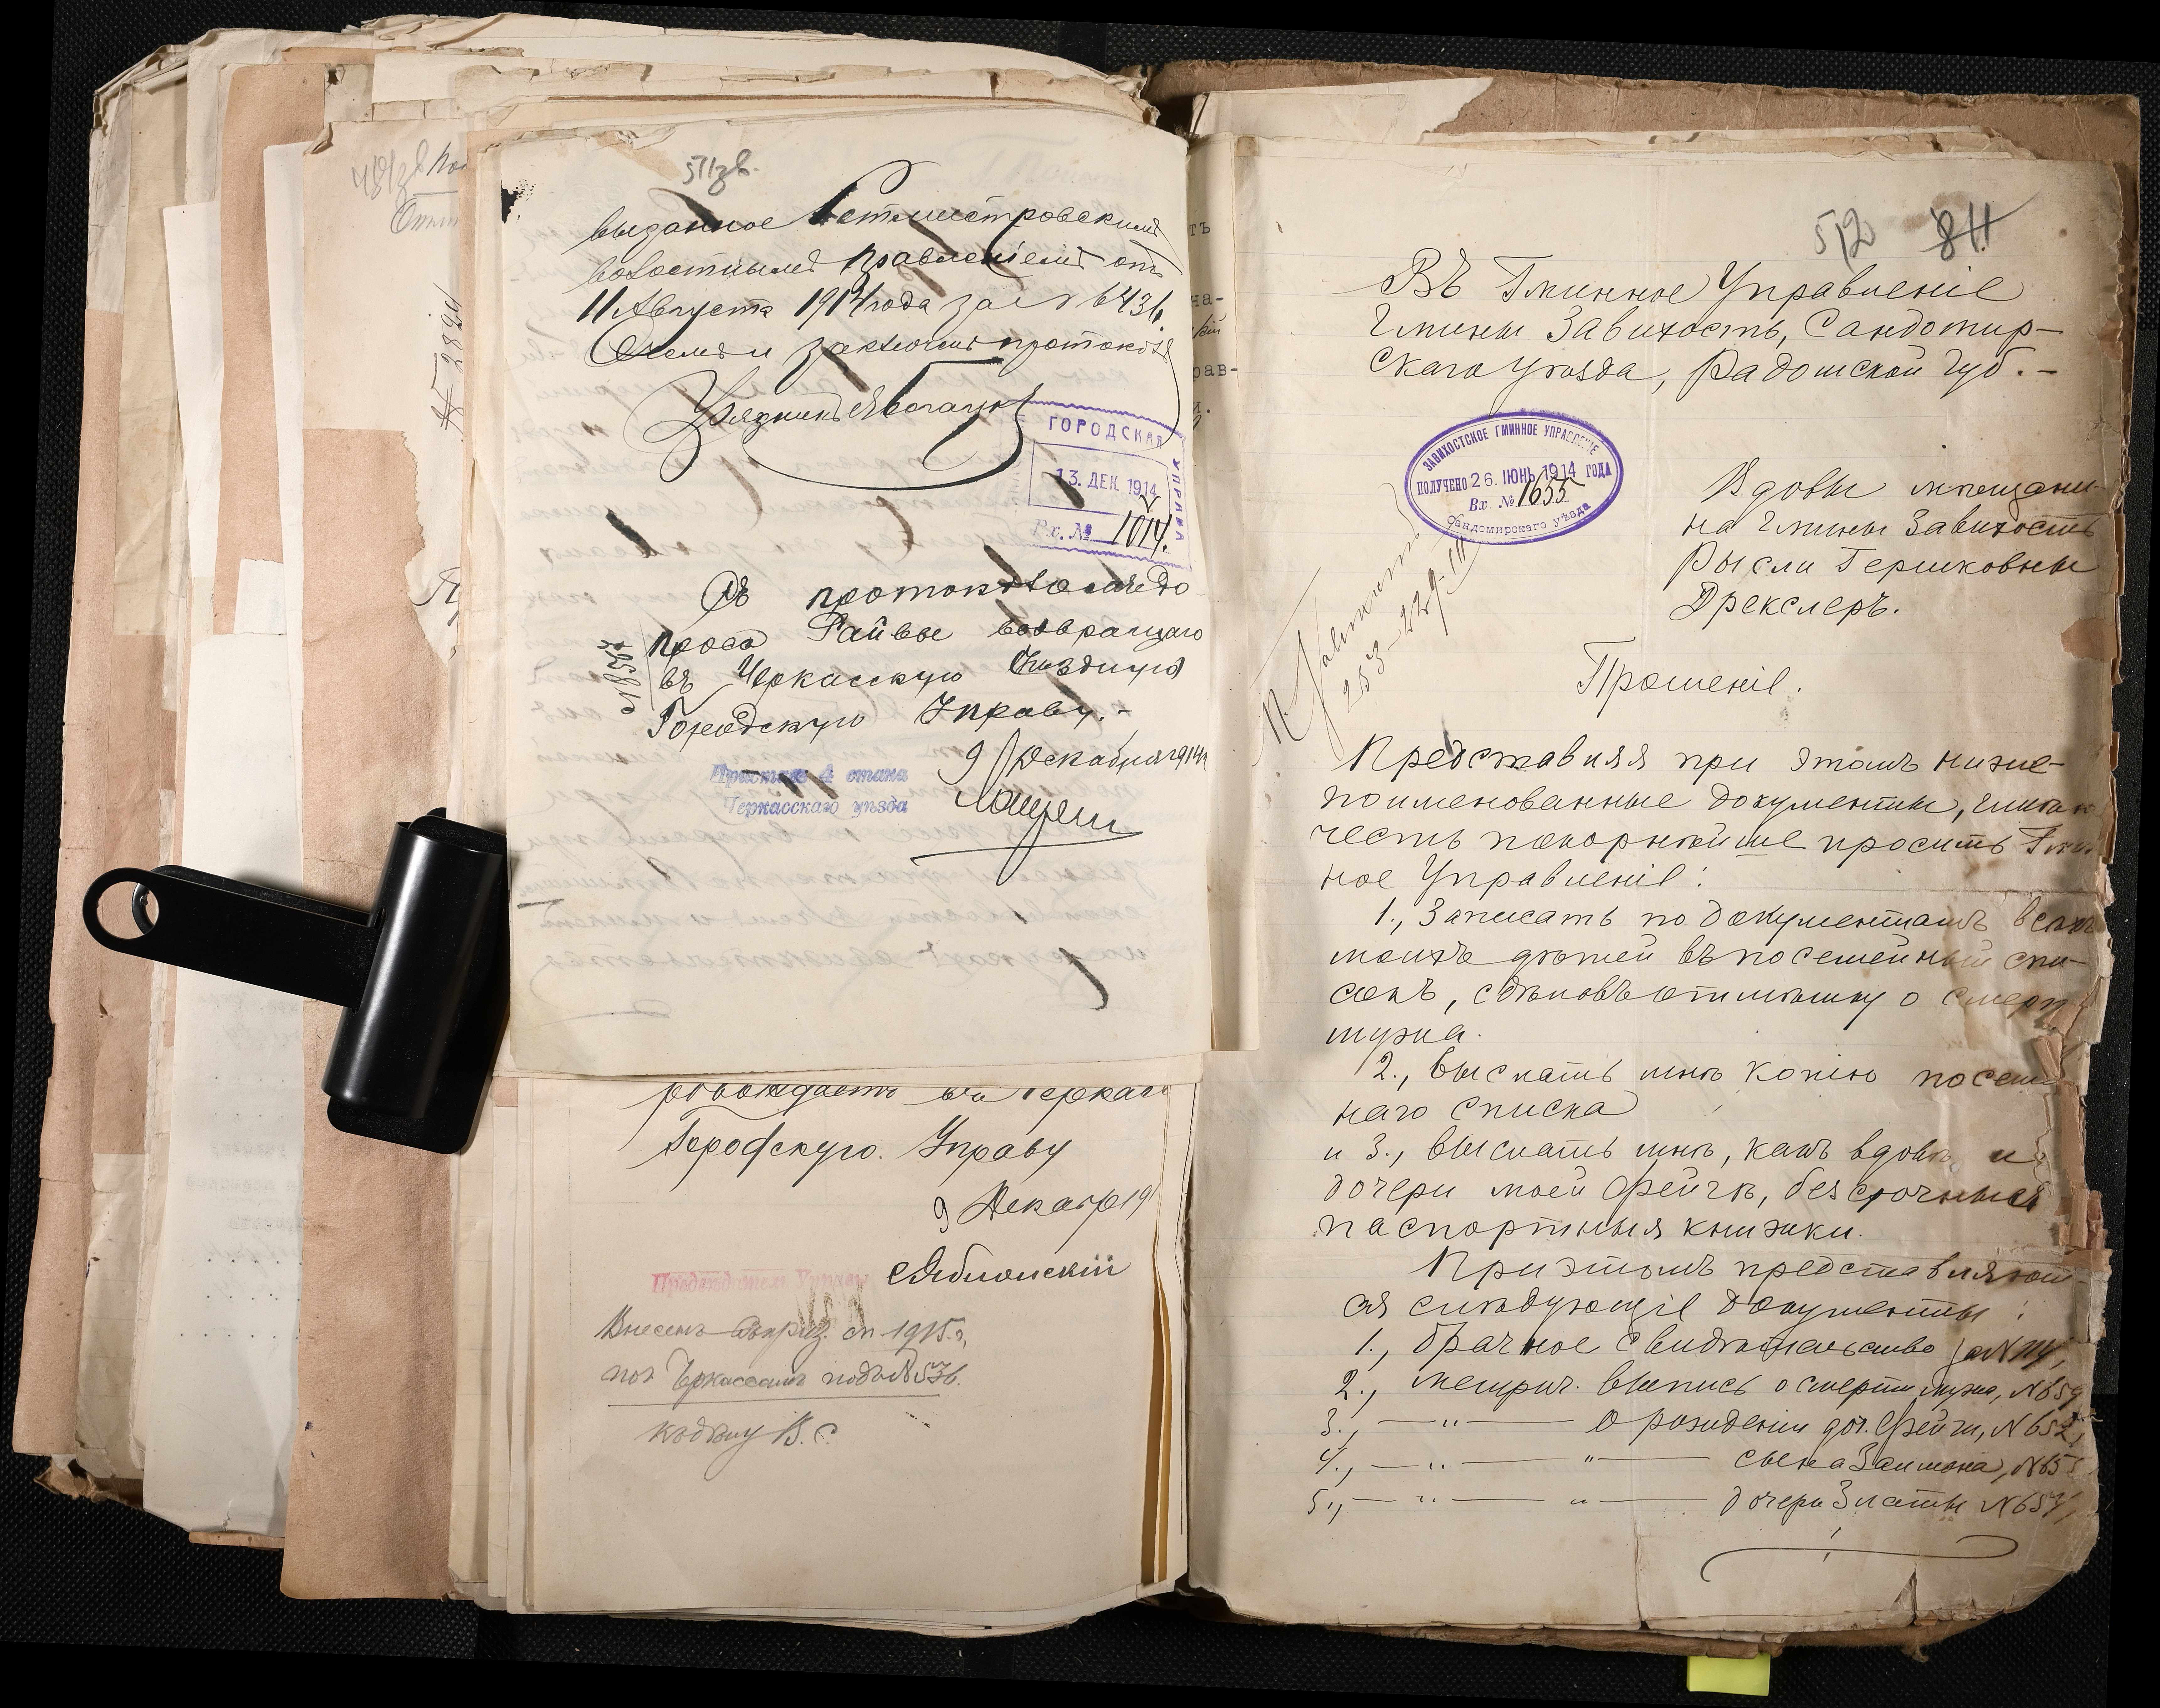 511зв.
выданное Ротмистровскимъ
волостнымъ Правленіемъ отъ
11 Августа 1914 года за № 6436.
заключилъ протоколъ
Урядникъ
ГОРОДСКАЯ УПРАВА
13. ДЕК. 1914
Вх. № 1014.
Съ протоколомъ до
проса Райвы возвращаю
въ Черкасскую
Городскую Управу.-
9 Декабря 1914
Приставъ 4 стана
Черкасскаго уѣзда
въ Черкас
Городскую Управу
9 Декабр 19
Яблонскій
Внесенъ въ приз. сп. 1915 г.
по г. Черкассамъ подъ № 536.
Къ дѣлу В. С.
№ 2820
512 811
Въ Гминное Управленіе
Гмины Завихостъ, Сандомир-
скаго уѣзда, Радомской губ.-
ЗАВИХОСТСКОЕ ГМИННОЕ УПРАВЛЕНІЕ
ПОЛУЧЕНО 26. ІЮНЬ 1914 ГОДА
Вх. № 1655
Сандомирскаго уѣзда
Вдовы мѣщани-
на Гмины Завихостъ
Рысли Гершковны
Дрекслеръ.
Прошеніе.
Представляя при этомъ ниже-
поименованные документы, имѣю
честь покорнѣйше просить Гмин
ное Управленіе:
1., Записать по документамъ всѣхъ
моихъ дѣтей въ посемейный спи-
сокъ, сдѣлавъ отмѣтку о смерт
мужа.
2., Выслать мнѣ копію посем
наго списка
и 3., выслать мнѣ, какъ вдовѣ, и
дочери моей Фейгѣ, безсрочныя
паспортныя книжки.
При этомъ представляют-
ся слѣдующіе документы:
1., брачное свидѣтельство за № 114,
2., метрич. выпись о смерти мужа, № 659
3., — " — о рожденіи доч. Фейги, № 652,
4., — " — " — сына Залмона, № 65
5., — " — " — дочери Златы № 657,